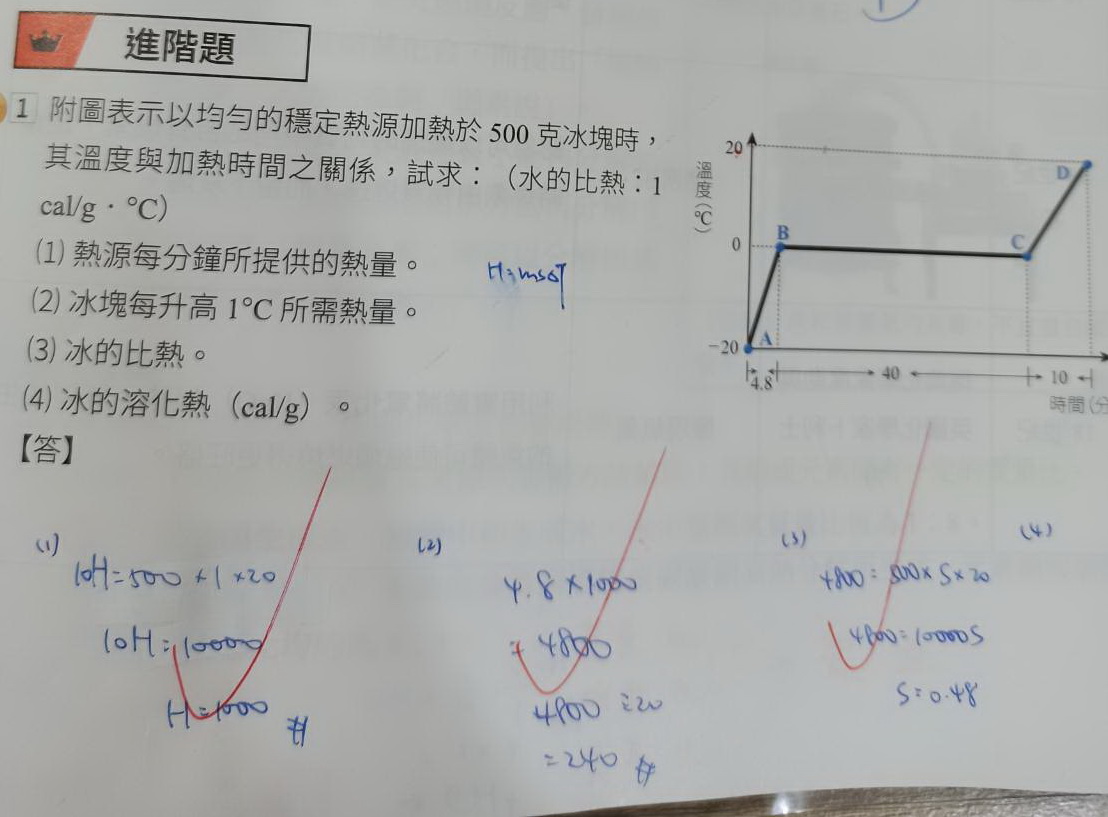 進階題
1 附圖表示以均勻的穩定熱源加熱於 500 克冰塊時，
其溫度與加熱時間之關係，試求：（水的比熱：1
cal/g．°C）
(1) 熱源每分鐘所提供的熱量。
H=msΔT
(2) 冰塊每升高 1°C 所需熱量。
(3) 冰的比熱。
(4) 冰的溶化熱（cal/g）。
【答】
溫度(°C)
20
0
−20
A
B
C
D
4.8
40
10
時間(分
(1)
10H=500×1×20
10H=10000
H=1000 #
(2)
4.8×1000
=4800
4800÷20
=240 #
(3)
4800=500×S×20
4800=10000S
S=0.48
(4)